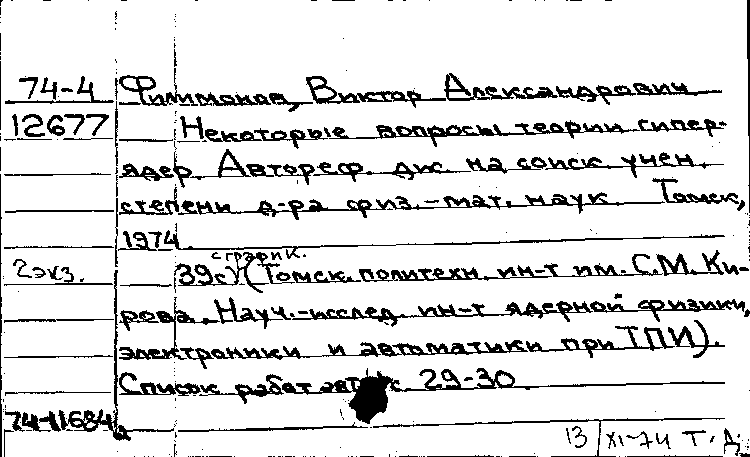 74-4 Филимонов, Виктор Александрович.
12677 Некоторые вопросы теории гипер-
ядер. Автореф. дис. на соиск. учен.
степени д-ра физ.-мат. наук. Томск,
1974.
с график.
2экз. 39с. (Томск. политехн. ин-т им. С.М. Ки-
рова. Науч.-исслед. ин-т ядерной физики,
электроники и автоматики при ТПИ).
Список работ авт. с. 29-30.
74-11684а
13 XI-74 Т. Д.